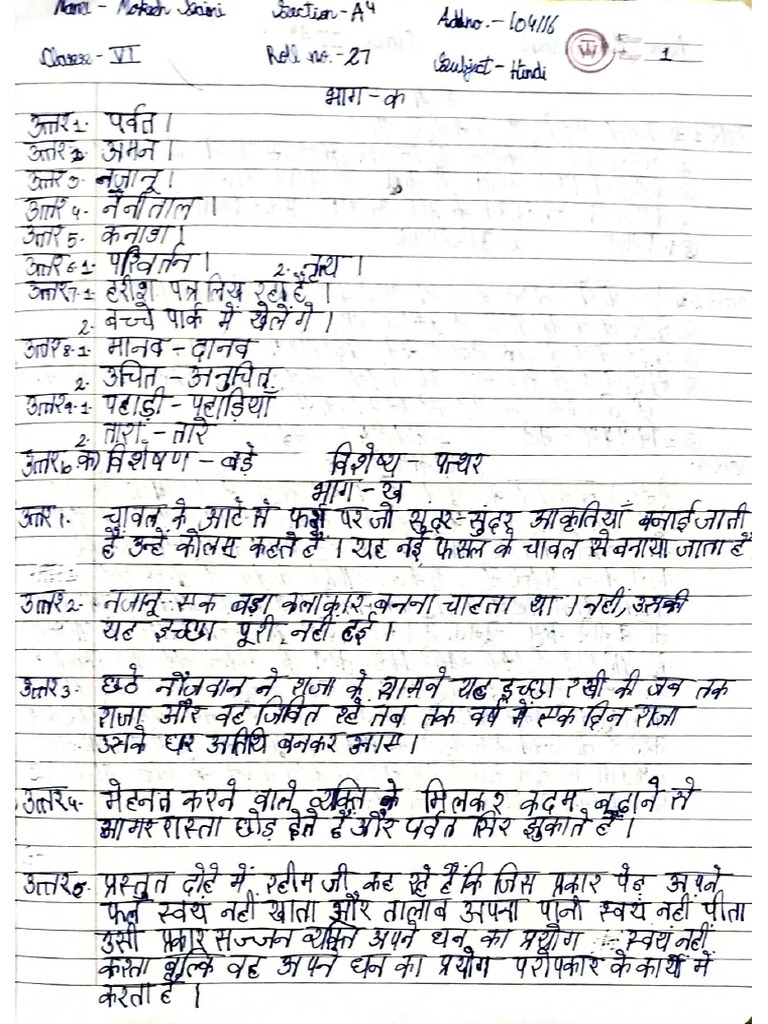 Name - Mokesh Saini Section - A4 Addno. - 104116
Classe - VI Roll no. - 27 Subject - Hindi 1
भाग - क
उत्तर1. पर्वत।
उत्तर2. अमन।
उत्तर3. नजानू।
उत्तर4. नैनीताल।
उत्तर5. कनाडा।
उत्तर6.1. परिवर्तन। 2. नृत्य।
उत्तर7.1 हरीश पत्र लिख रहा है।
2. बच्चे पार्क में खेलेंगे।
उत्तर8.1 मानव - दानव
2. उचित - अनुचित
उत्तर9.1. पहाड़ी - पहाड़ियाँ
2. तारा - तारे
उत्तर10 क) विशेषण - बड़े विशेष्य - पत्थर
भाग - ख
उत्तर1. चावल के आटे से फर्श पर जो सुंदर-सुंदर आकृतियाँ बनाई जाती
है उन्हे कोलम कहते हैं। यह नई फसल के चावल से बनाया जाता है
उत्तर2. नजानू एक बड़ा कलाकार बनना चाहता था। नही, उसकी
यह इच्छा पूरी नही हुई।
उत्तर3. छठे नौजवान ने राजा के सामने यह इच्छा रखी की जब तक
राजा और वह जिवित रहे तब तक वर्ष में एक दिन राजा
उसके घर अतिथि बनकर आए।
उत्तर4. मेहनत करने वाले व्यक्ति के मिलकर कदम बढ़ाने से
सागर रास्ता छोड़ देते हैं और पर्वत सिर झुकाते हैं।
उत्तर5. प्रस्तुत दोहे में रहीम जी कह रहे हैं कि जिस प्रकार पेड़ अपने
फल स्वयं नही खाता और तालाब अपना पानी स्वयं नही पीता
उसी प्रकार सज्जन व्यक्ति अपने धन का प्रयोग स्वयं नहीं
करता बल्कि वह अपने धन का प्रयोग परोपकार के कार्य में
करता है।